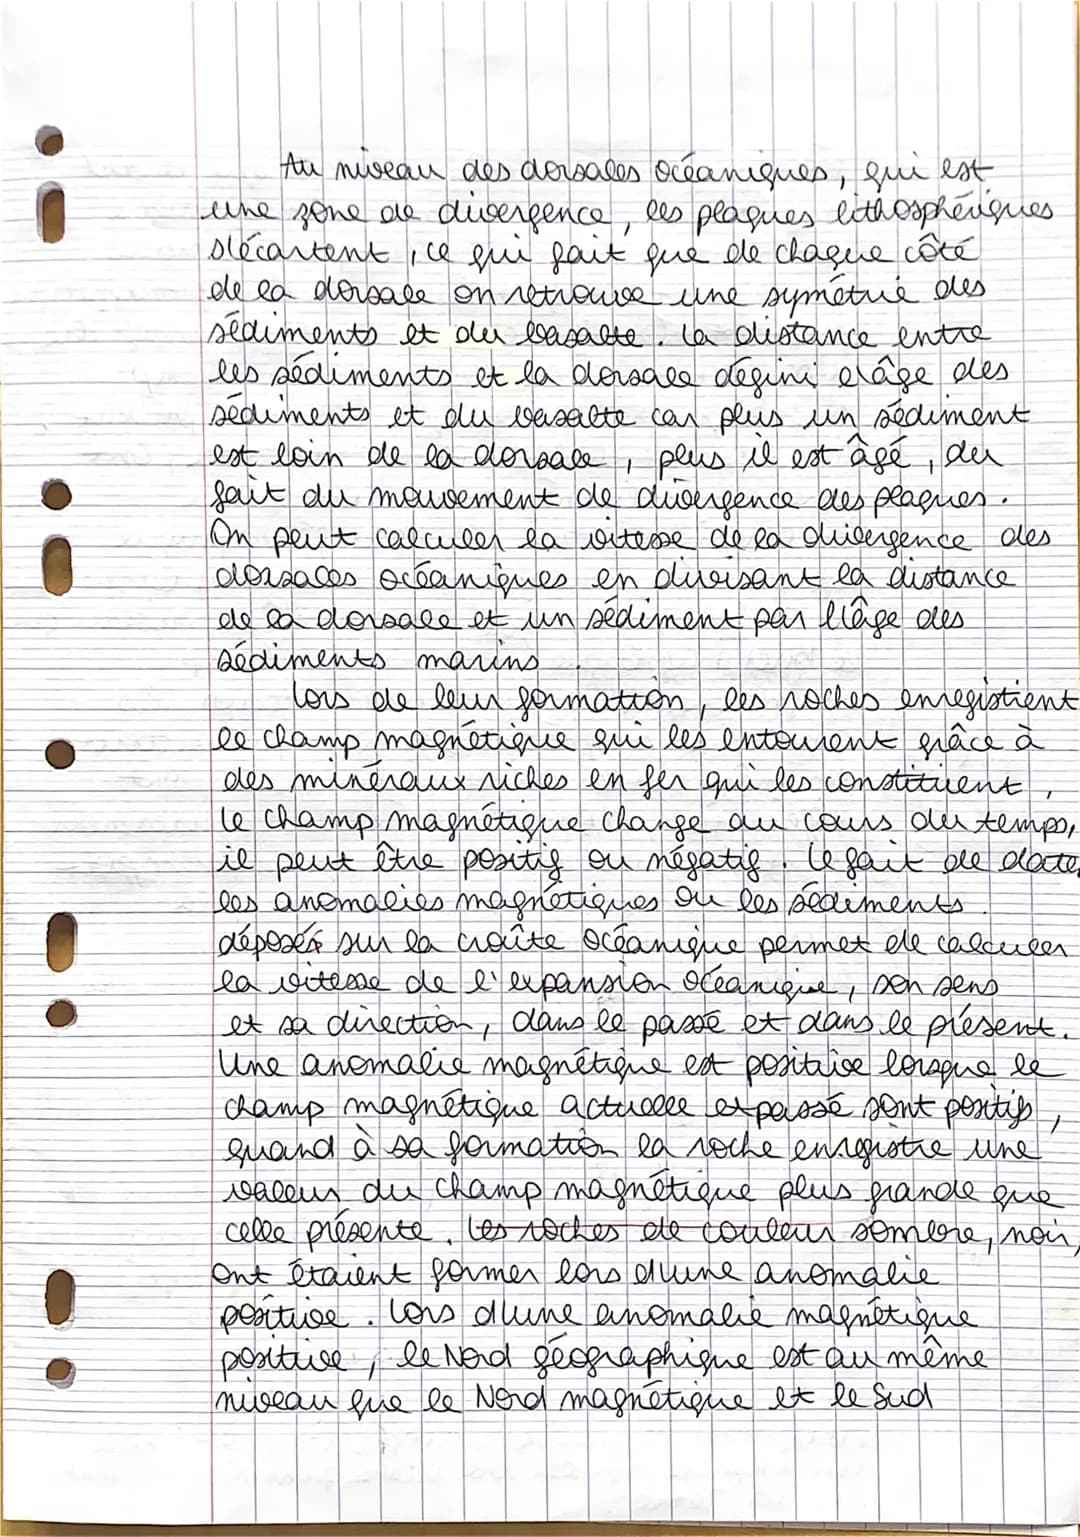 Au niveau des dorsales océaniques, qui est
une zone de divergence, les plaques lithosphériques
s'écartent, ce qui fait que de chaque côté
de la dorsale on retrouve une symétrie des
sédiments et du basalte. la distance entre
les sédiments et la dorsale défini l'âge des
sédiments et du basalte car plus un sédiment
est loin de la dorsale, plus il est âgé, du
fait du mouvement de divergence des plaques.
On peut calculer la vitesse de la divergence des
dorsales océaniques en divisant la distance
de la dorsale et un sédiment par l'âge des
sédiments marins.
Lors de leur formation, les roches enregistrent
le champ magnétique qui les entourent grâce à
des minéraux riches en fer qui les constituent,
le champ magnétique change au cours du temps,
il peut être positif ou négatif. Le fait de dater
les anomalies magnétiques ou les sédiments
déposés sur la croûte océanique permet de calculer
la vitesse de l'expansion océanique, son sens
et sa direction, dans le passé et dans le présent.
Une anomalie magnétique est positive lorsque le
champ magnétique actuelle et passé sont positifs,
quand à sa formation la roche enregistre une
valeur du champ magnétique plus grande que
celle présente. Les roches de couleur sombre, noir,
ont étaient former lors d'une anomalie
positive. Lors d'une anomalie magnétique
positive, le Nord géographique est au même
niveau que le Nord magnétique et le Sud